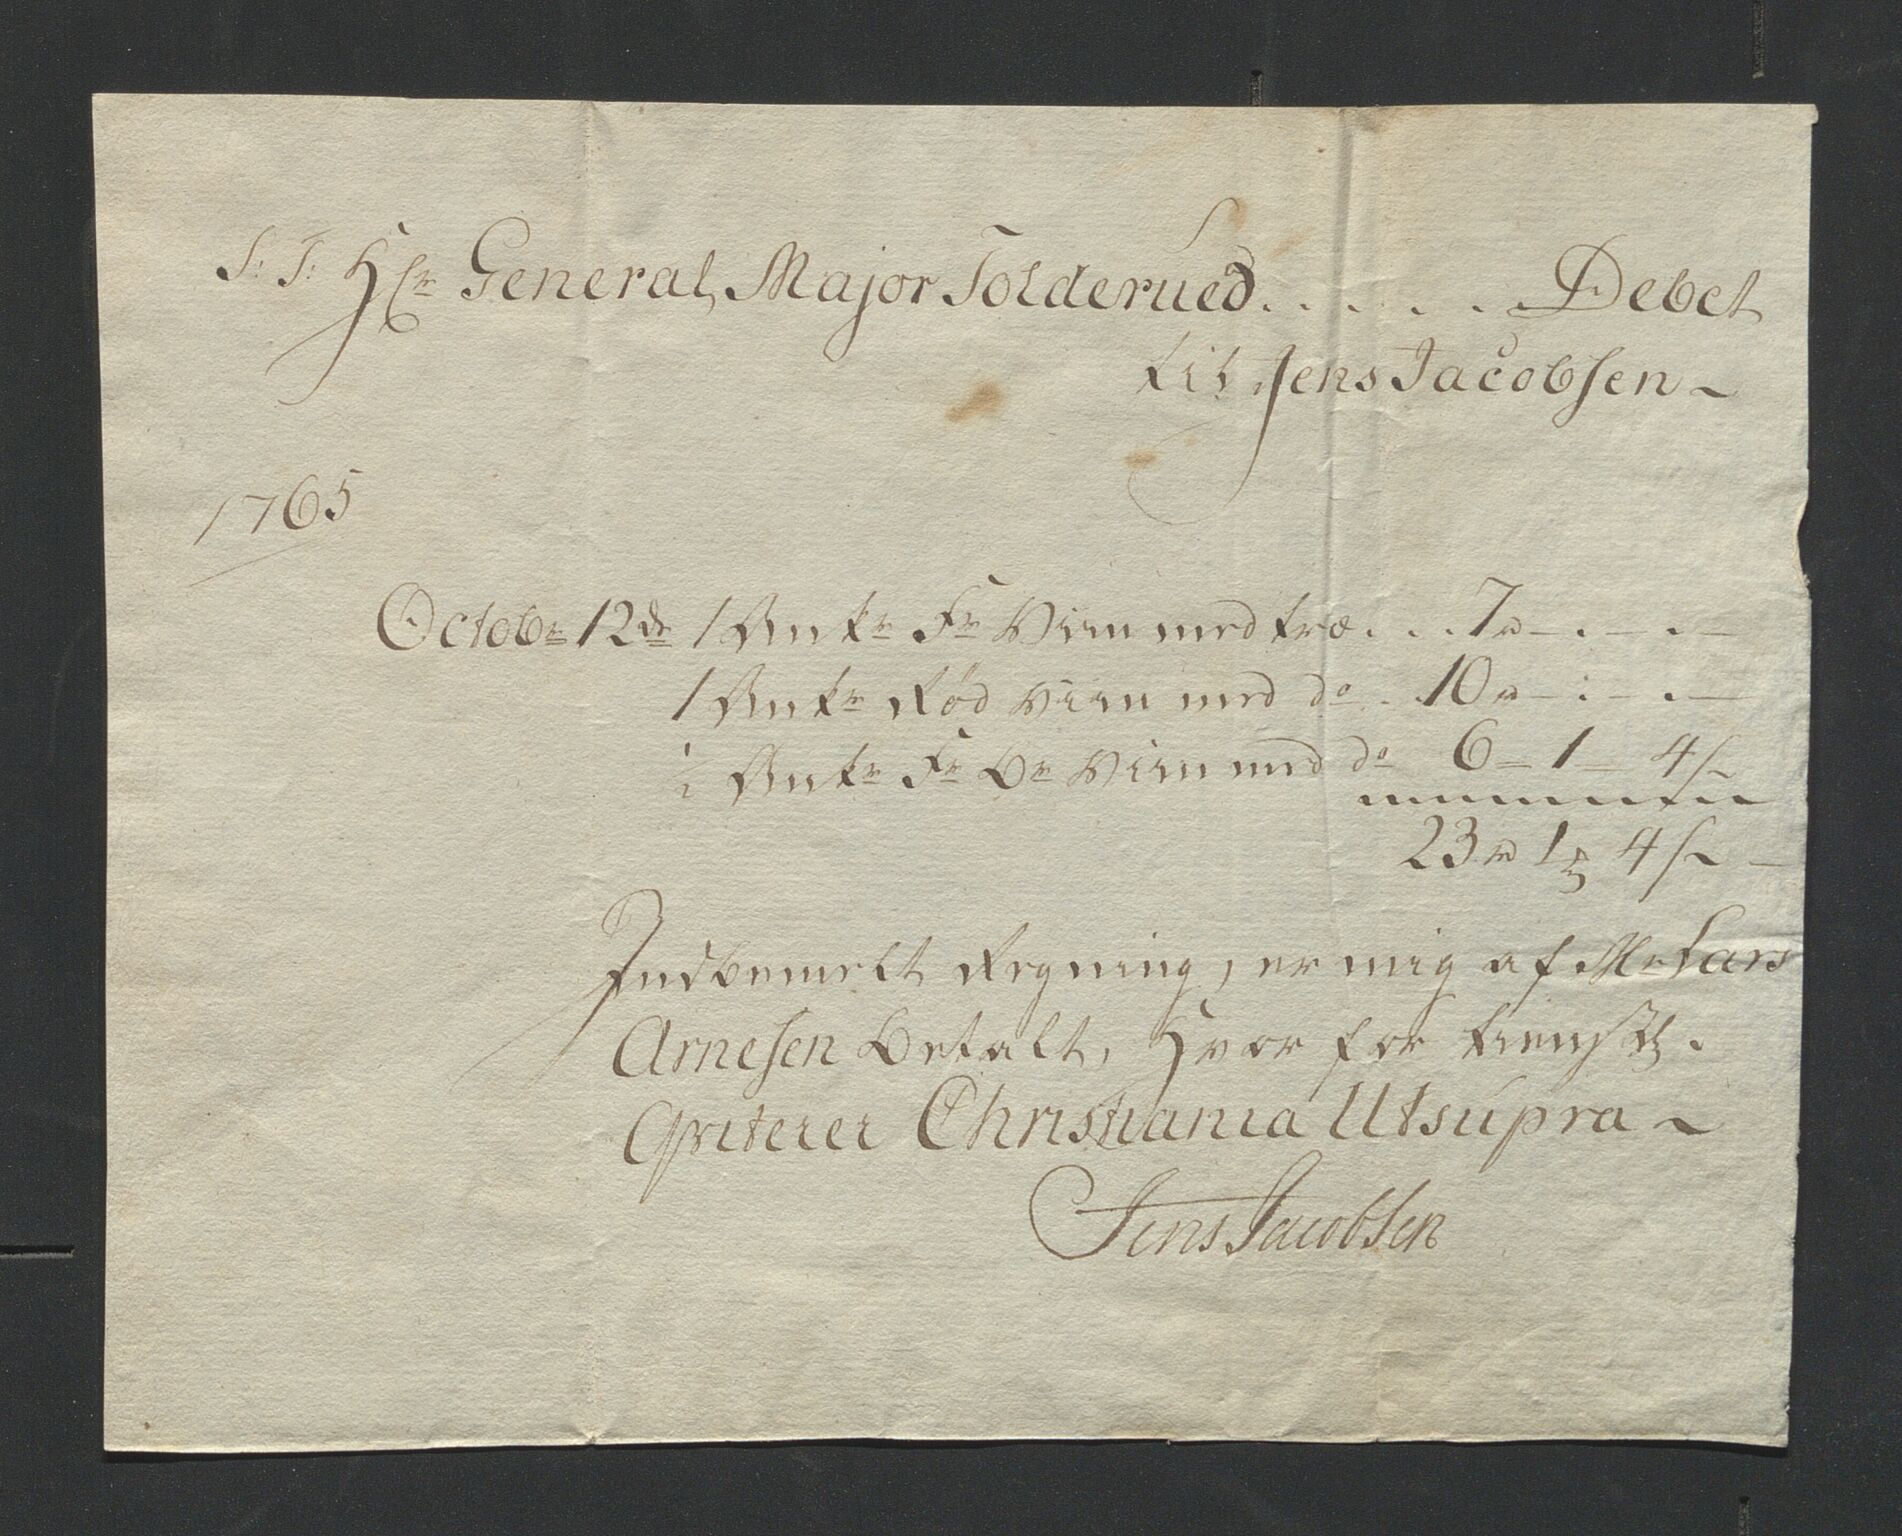 S: T: Hr General Major Tolderued . . . . . Debet
til Jens Jacobsen
1765
Octobr 12de 1 Anker Fr Viin med træ . . . 7 rd - . - . -
1 Anker Rød Viin med do . . 10 rd - : - . -
1 Anker Fr Br Viin med do 6 - 1 - 4 s
23 rd 1 4 s -
Indbemelt Regning, er mig af Mr Lars
Arnesen betalt, hvor for tienstl.
Qviterer Christiania Utsupra
Jens Jacobsen